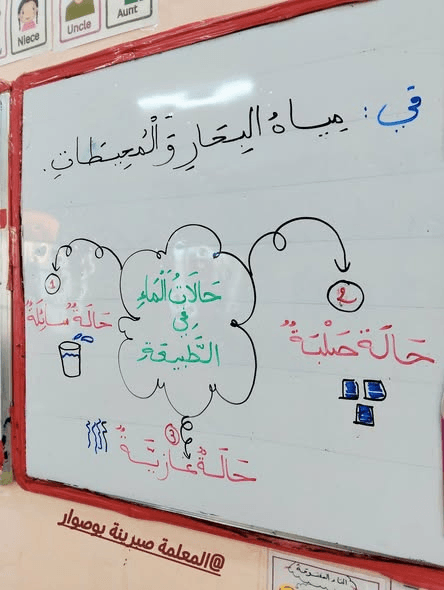 Niece
Uncle
Aunt
في: مِيَاهُ الْبِحَارِ وَالْمُحِيطَاتِ.
حَالَاتُ الْمَاءِ
فِي
الطَّبِيعَةِ
1
حَالَةٌ سَائِلَةٌ
2
حَالَة صَلْبَةٌ
3
حَالَةٌ غَازِيَّةٌ
@المعلمة صبرينة بوصوار